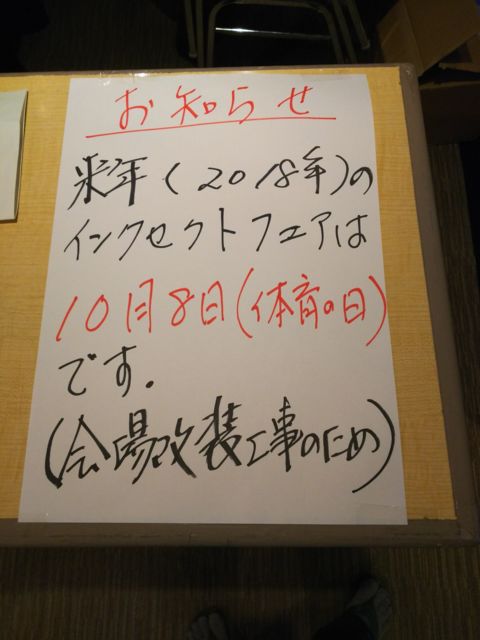 お知らせ
来年(2018年)の
インクセクトフェアは
10月8日(体育の日)
です.
(会場改装工事のため)